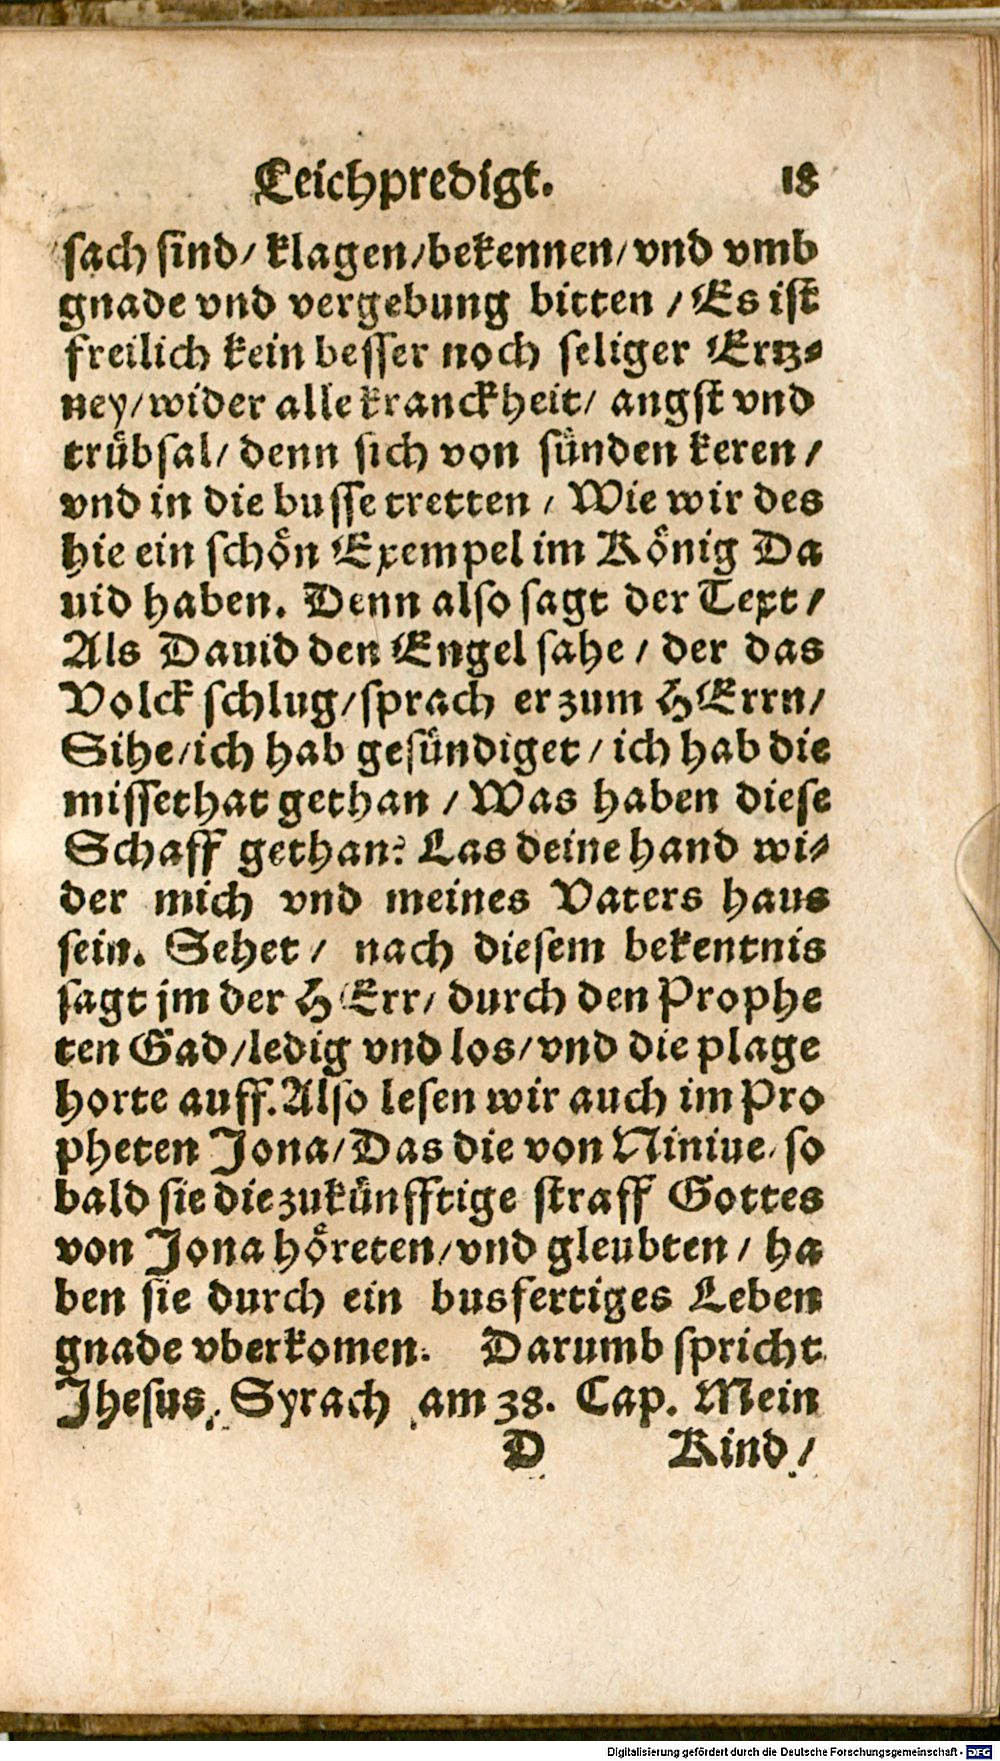 Leichpredigt. 18
sach sind/ klagen/bekennen/vnd vmb
gnade vnd vergebung bitten / Es ist
freilich kein besser noch seliger Ertz-
ney/wider alle kranckheit/ angst vnd
trübsal/ denn sich von sünden keren /
vnd in die busse tretten / Wie wir des
hie ein schön Exempel im König Da
uid haben. Denn also sagt der Text /
Als Dauid den Engel sahe / der das
Volck schlug/sprach er zum HErrn/
Sihe/ich hab gesündiget / ich hab die
missethat gethan / Was haben diese
Schaff gethan? Las deine hand wi-
der mich vnd meines Vaters haus
sein. Sehet / nach diesem bekentnis
sagt jm der HErr/ durch den Prophe
ten Gad/ledig vnd los/vnd die plage
horte auff. Also lesen wir auch im Pro
pheten Jona/Das die von Niniue/ so
bald sie die zukünfftige straff Gottes
von Jona höreten/vnd gleubten / ha
ben sie durch ein busfertiges Leben
gnade vberkomen. Darumb spricht
Jhesus Syrach am 38. Cap. Mein
D Kind /
Digitalisierung gefördert durch die Deutsche Forschungsgemeinschaft - DFG